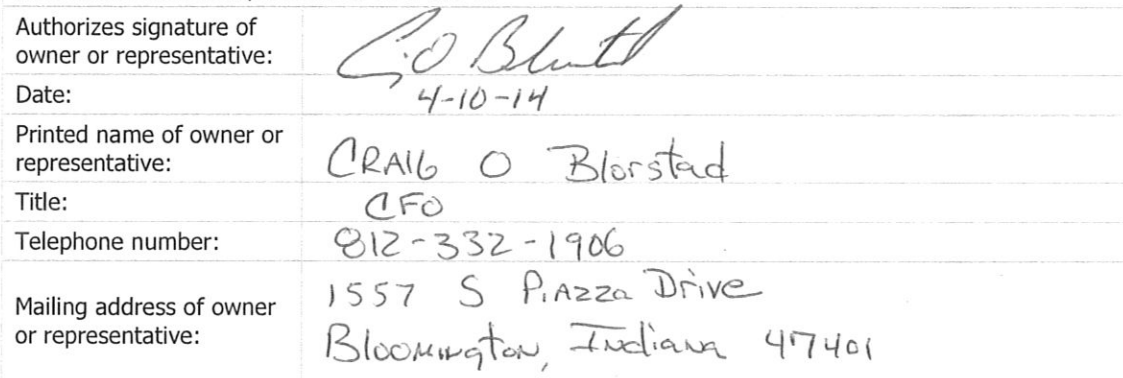 Authorizes signature of
owner or representative:
Date: 4-10-14
Printed name of owner or
representative: CRAIG O Blorstad
Title: CFO
Telephone number: 812-332-1906
Mailing address of owner
or representative:
1557 S PiAzza Drive
Bloomington, Indiana 47401